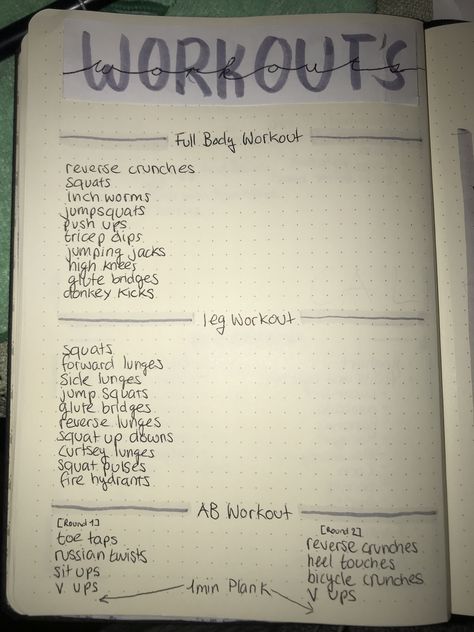 WORKOUT'S
workouts
Full Body Workout
reverse crunches
squats
inch worms
jumpsquats
push ups
tricep dips
jumping jacks
high knees
glute bridges
donkey kicks
leg Workout
squats
forward lunges
side lunges
jump squats
glute bridges
reverse lunges
squat up downs
curtsey lunges
squat pulses
fire hydrants
AB Workout
[Round 1]
toe taps
russian twists
sit ups
V ups
[Round 2]
reverse crunches
heel touches
bicycle crunches
V ups
1min Plank